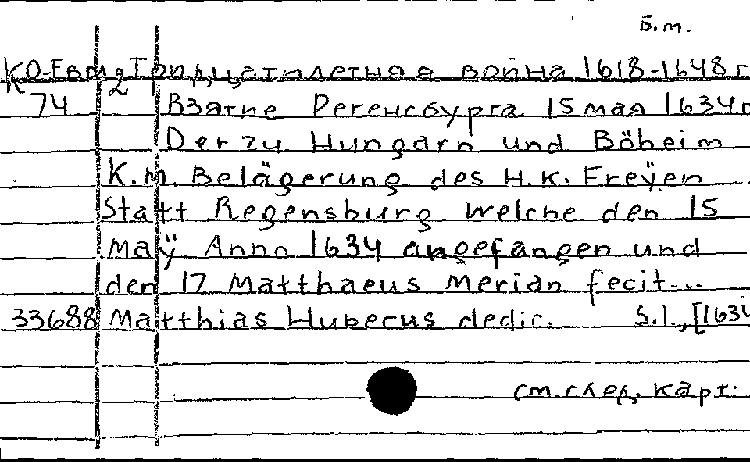 Б.м.
КО-Евг/2 Тридцатилетная война 1618-1648 г
74 Взятие Регенсбурга 15 мая 1634 г
Der zu Hungarn und Böheim
K.M. Belägerung des H.R. Freÿen
Statt Regensburg welche den 15
Maÿ Anno 1634 angefangen und
den 17 Matthaeus Merian fecit...
33688 Matthias Hubecus dedic. S.l.,[1634
см. след. карт.